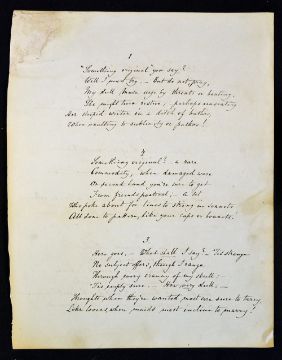 1
"Something original" you say?
Well I must try, — But do not pray,
My dull Muse urge by threats or beating,
She might turn restive, perhaps
Her stupid writer in a ditch of bathos,
When vaulting to sublimity or pathos!
2
Something original? a rare
Commodity, when damaged ware
Or second hand, you're sure to get
From friends poetical; — a set
Who poke about for lines to string in
All done to pattern, like your caps or bonnets.
3
Here goes, — What shall I say? — 'Tis strange
No subject offers, though I range
Through every cranny of my skull; —
'Tis empty sure — How very dull —
Thoughts when they're wanted most are sure to tarry,
Like lovers, when maids most incline to marry!